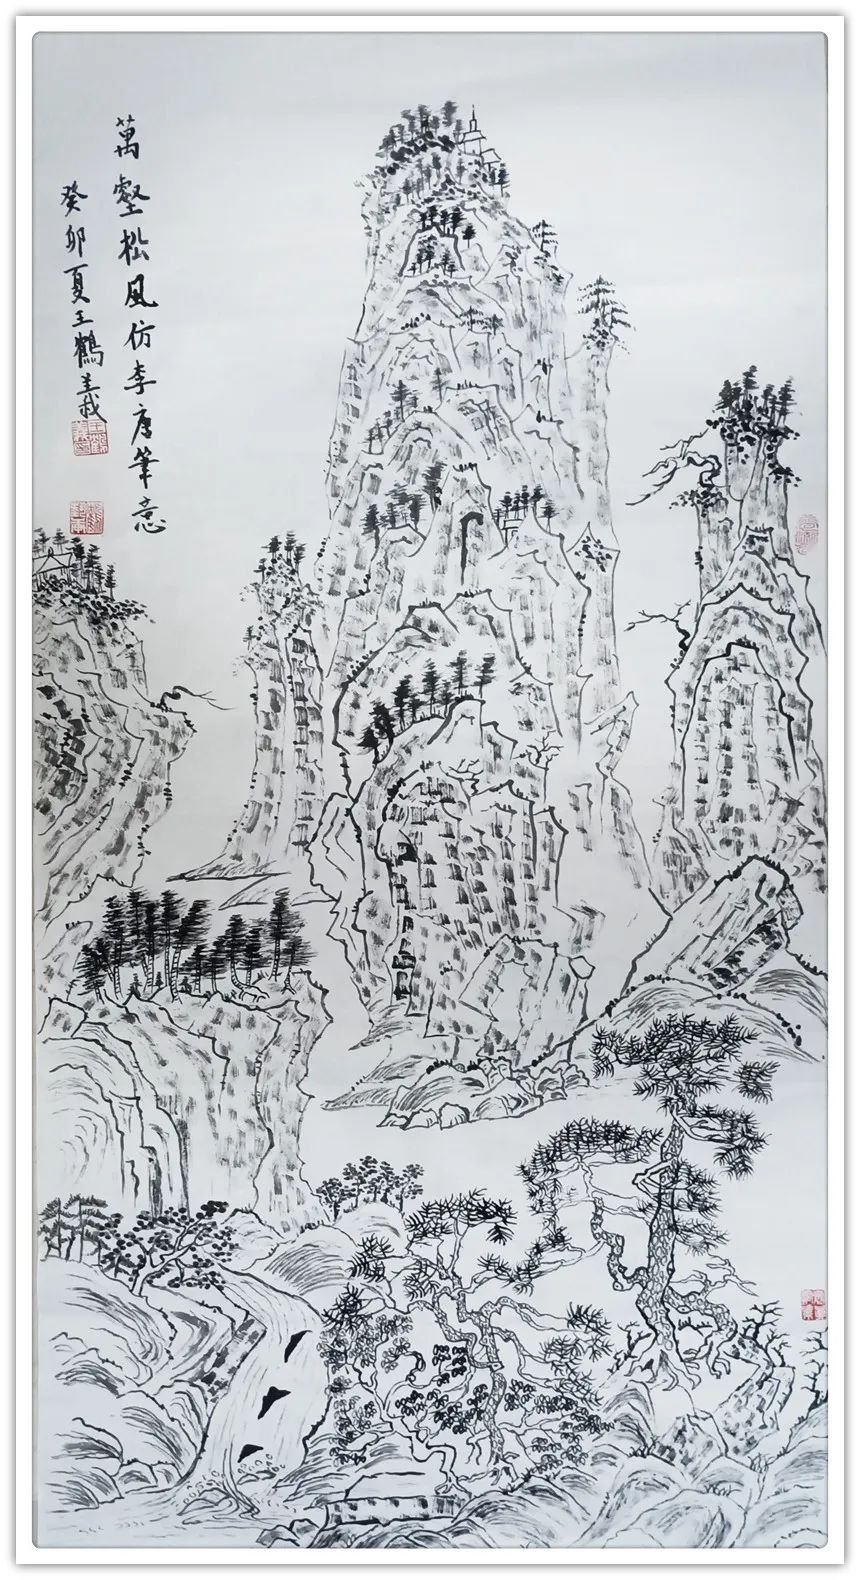 萬壑松風仿李唐筆意
癸卯夏王鶴